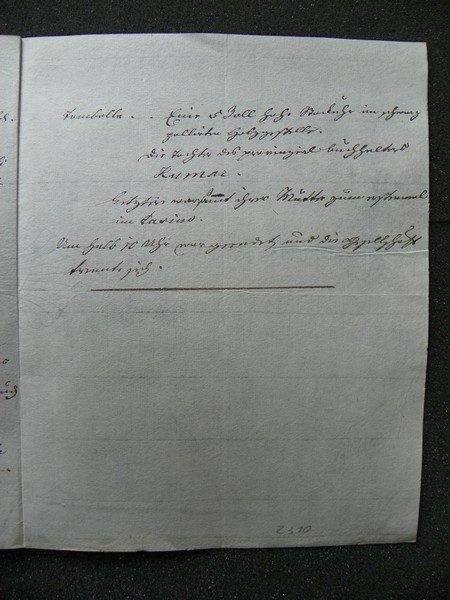 Tombolla. . . Eine 5 Zoll hohe Stockuhr im schwarz
pollirten Holzgestelle.
Die Tochter des provinzial buchhalters
Kumar.
Letztere war samt ihrer Mutter zum erstenmal
im Casino.
Um halb 10 Uhr war geendet und die Gesellschaft
trennte sich.